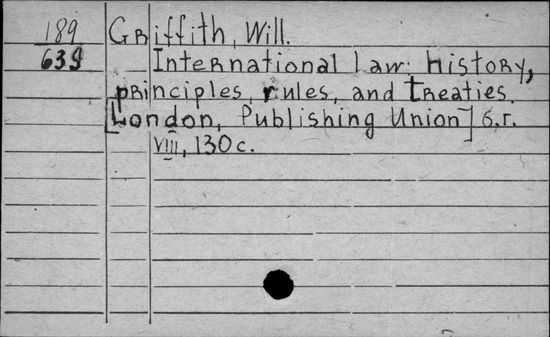 189 Griffith, Will.
639 International law: history,
principles, rules, and treaties.
[London, Publishing Union] б.г.
VIII, 130 с.